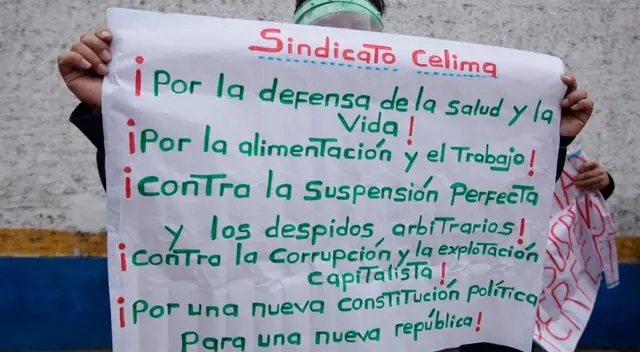 Sindicato Celima
¡Por la defensa de la salud y la
Vida!
¡Por la alimentación y el Trabajo!
¡Contra la Suspensión Perfecta
y los despidos arbitrarios!
¡Contra la Corrupción y la explotación
capitalista!
¡Por una nueva constitución política
Para una nueva república!